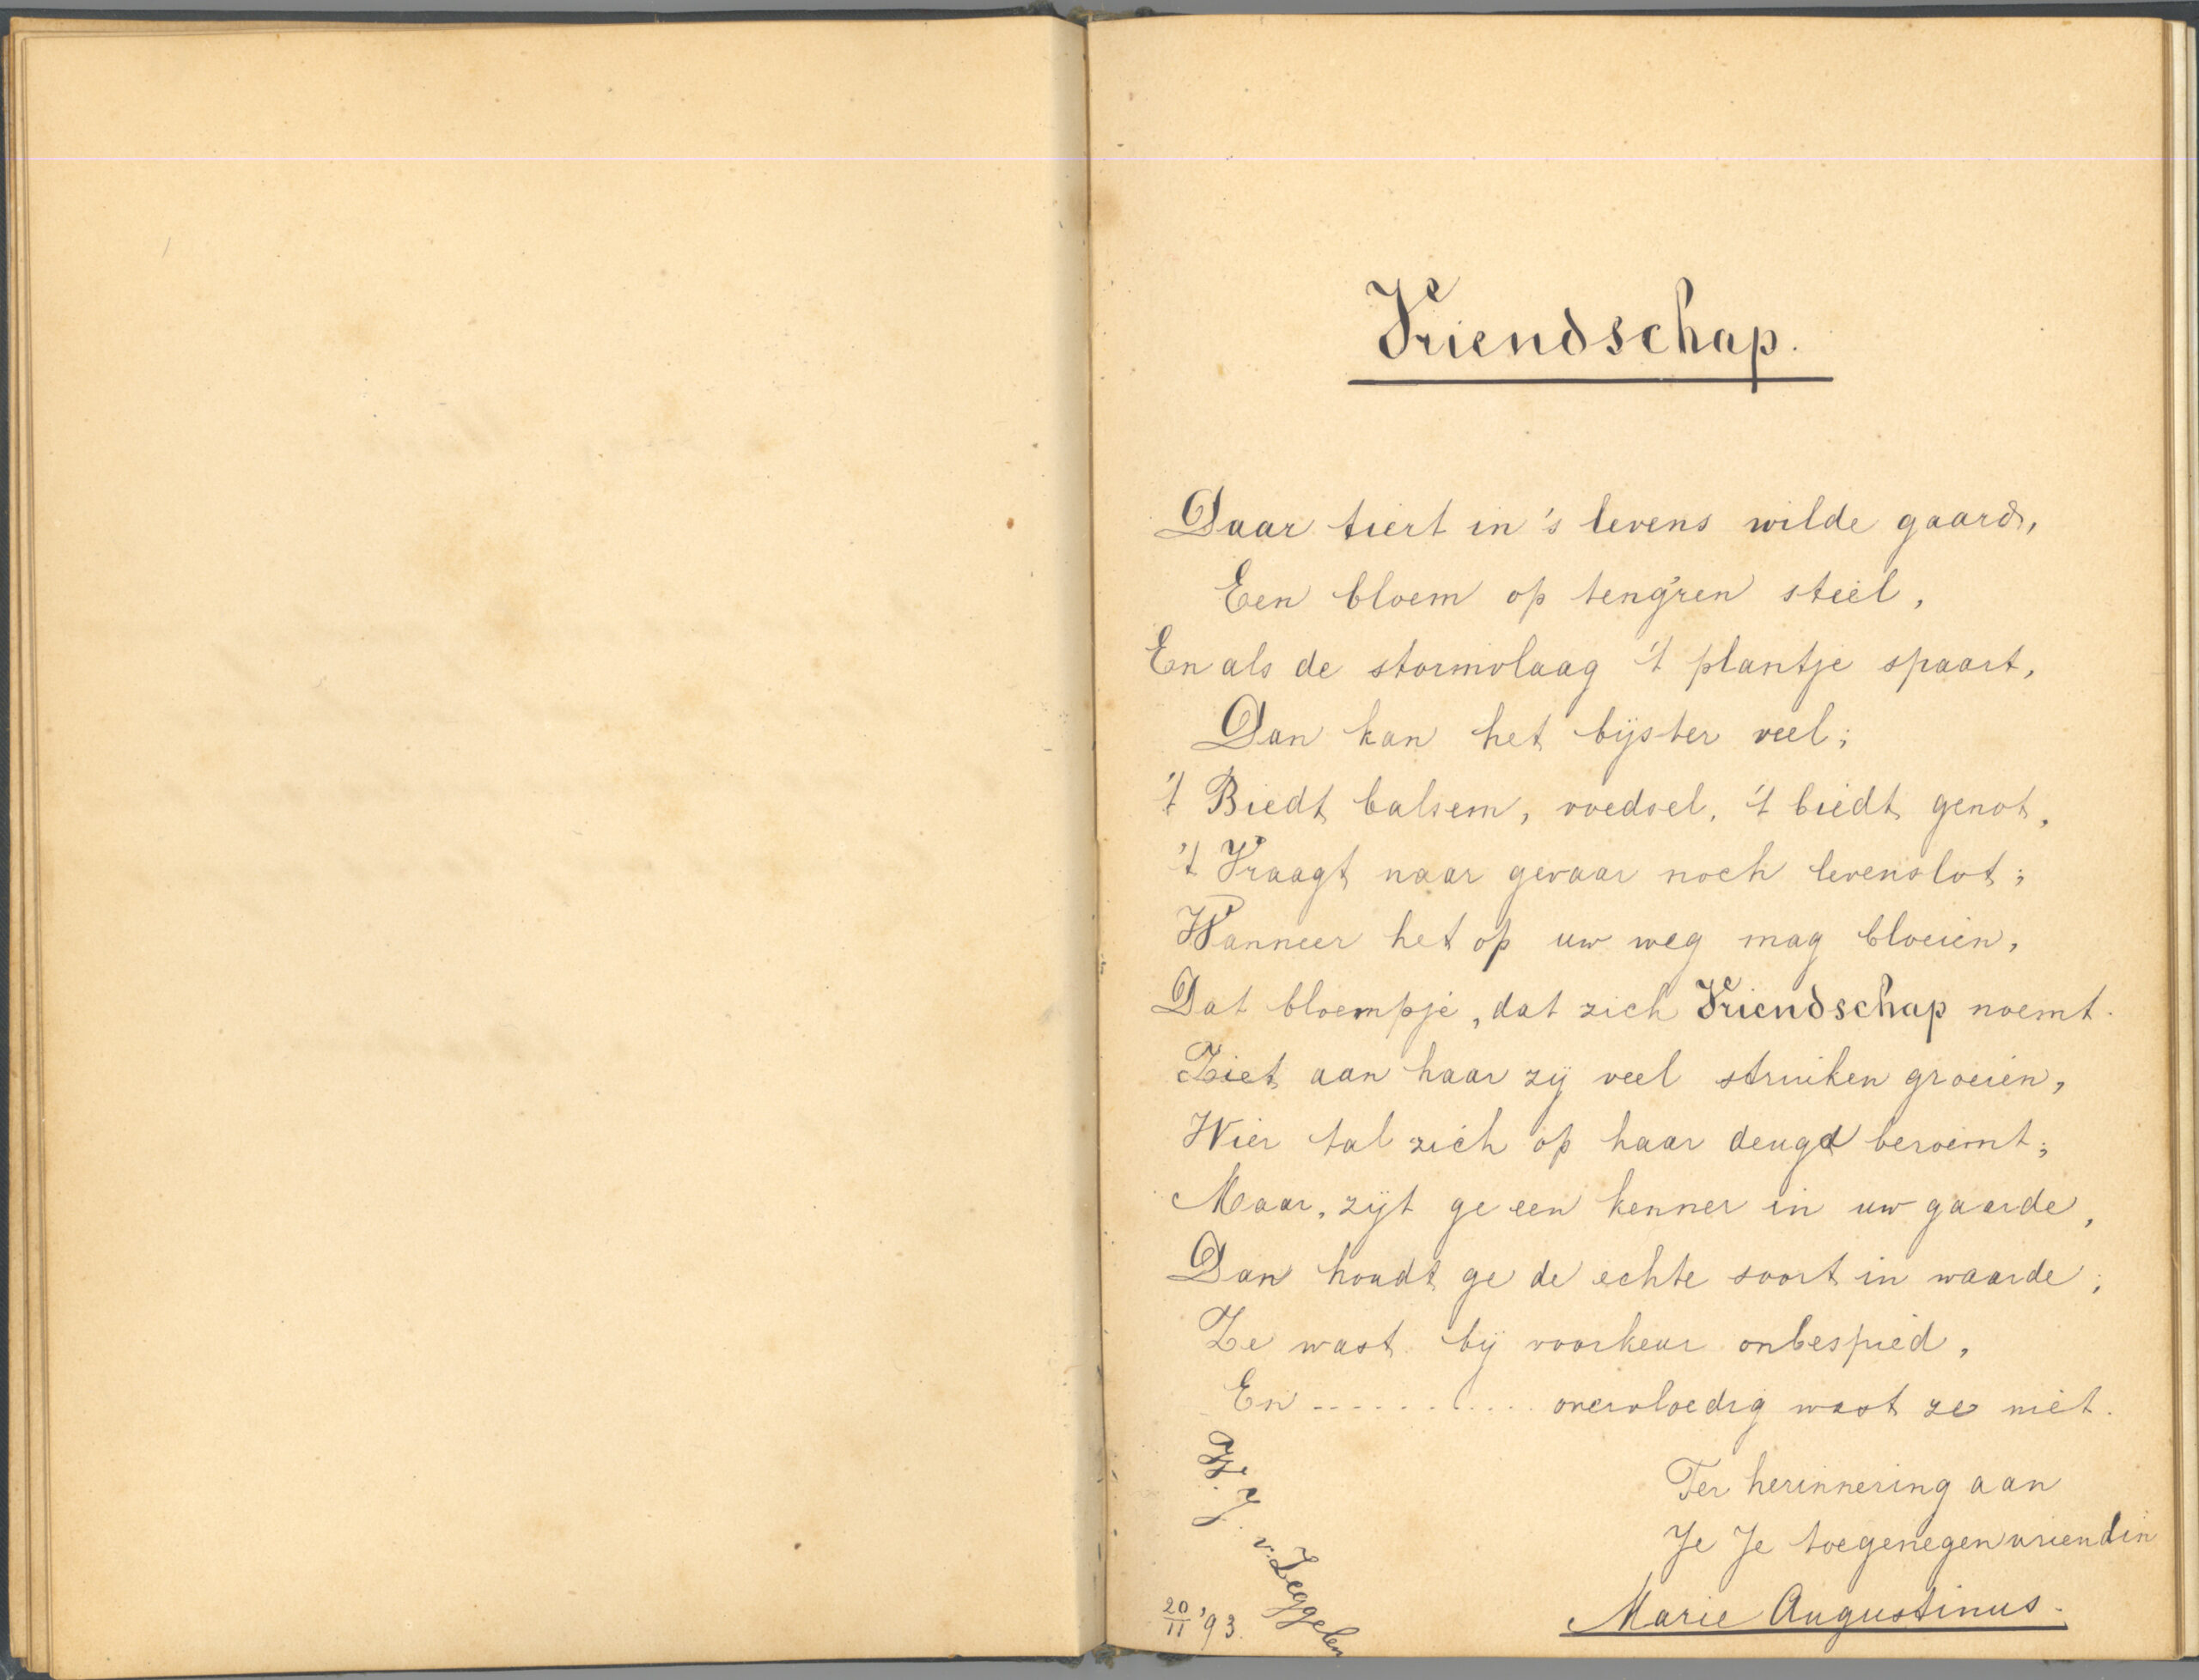 Vriendschap.
Daar tiert in 's levens wilde gaard,
Een bloem op teng'ren steel,
En als de stormvlaag 't plantje spaart,
Dan kan het bijster veel;
't Biedt balsem, voedsel, 't biedt genot,
't Vraagt naar gevaar noch levenslot;
Wanneer het op uw weg mag bloeien,
Dat bloempje, dat zich Vriendschap noemt.
Ziet aan haar zij veel struiken groeien,
Wier tal zich op haar deugd beroemt;
Maar, zijt ge een kenner in uw gaarde,
Dan houdt ge de echte soort in waarde;
Ze wast bij voorkeur onbespied,
En ........... overvloedig wast ze niet.
Ter herinnering aan
Je Je toegenegen vriendin
Marie Augustinus.
W. J. v. Zeggelen
20/11 '93.